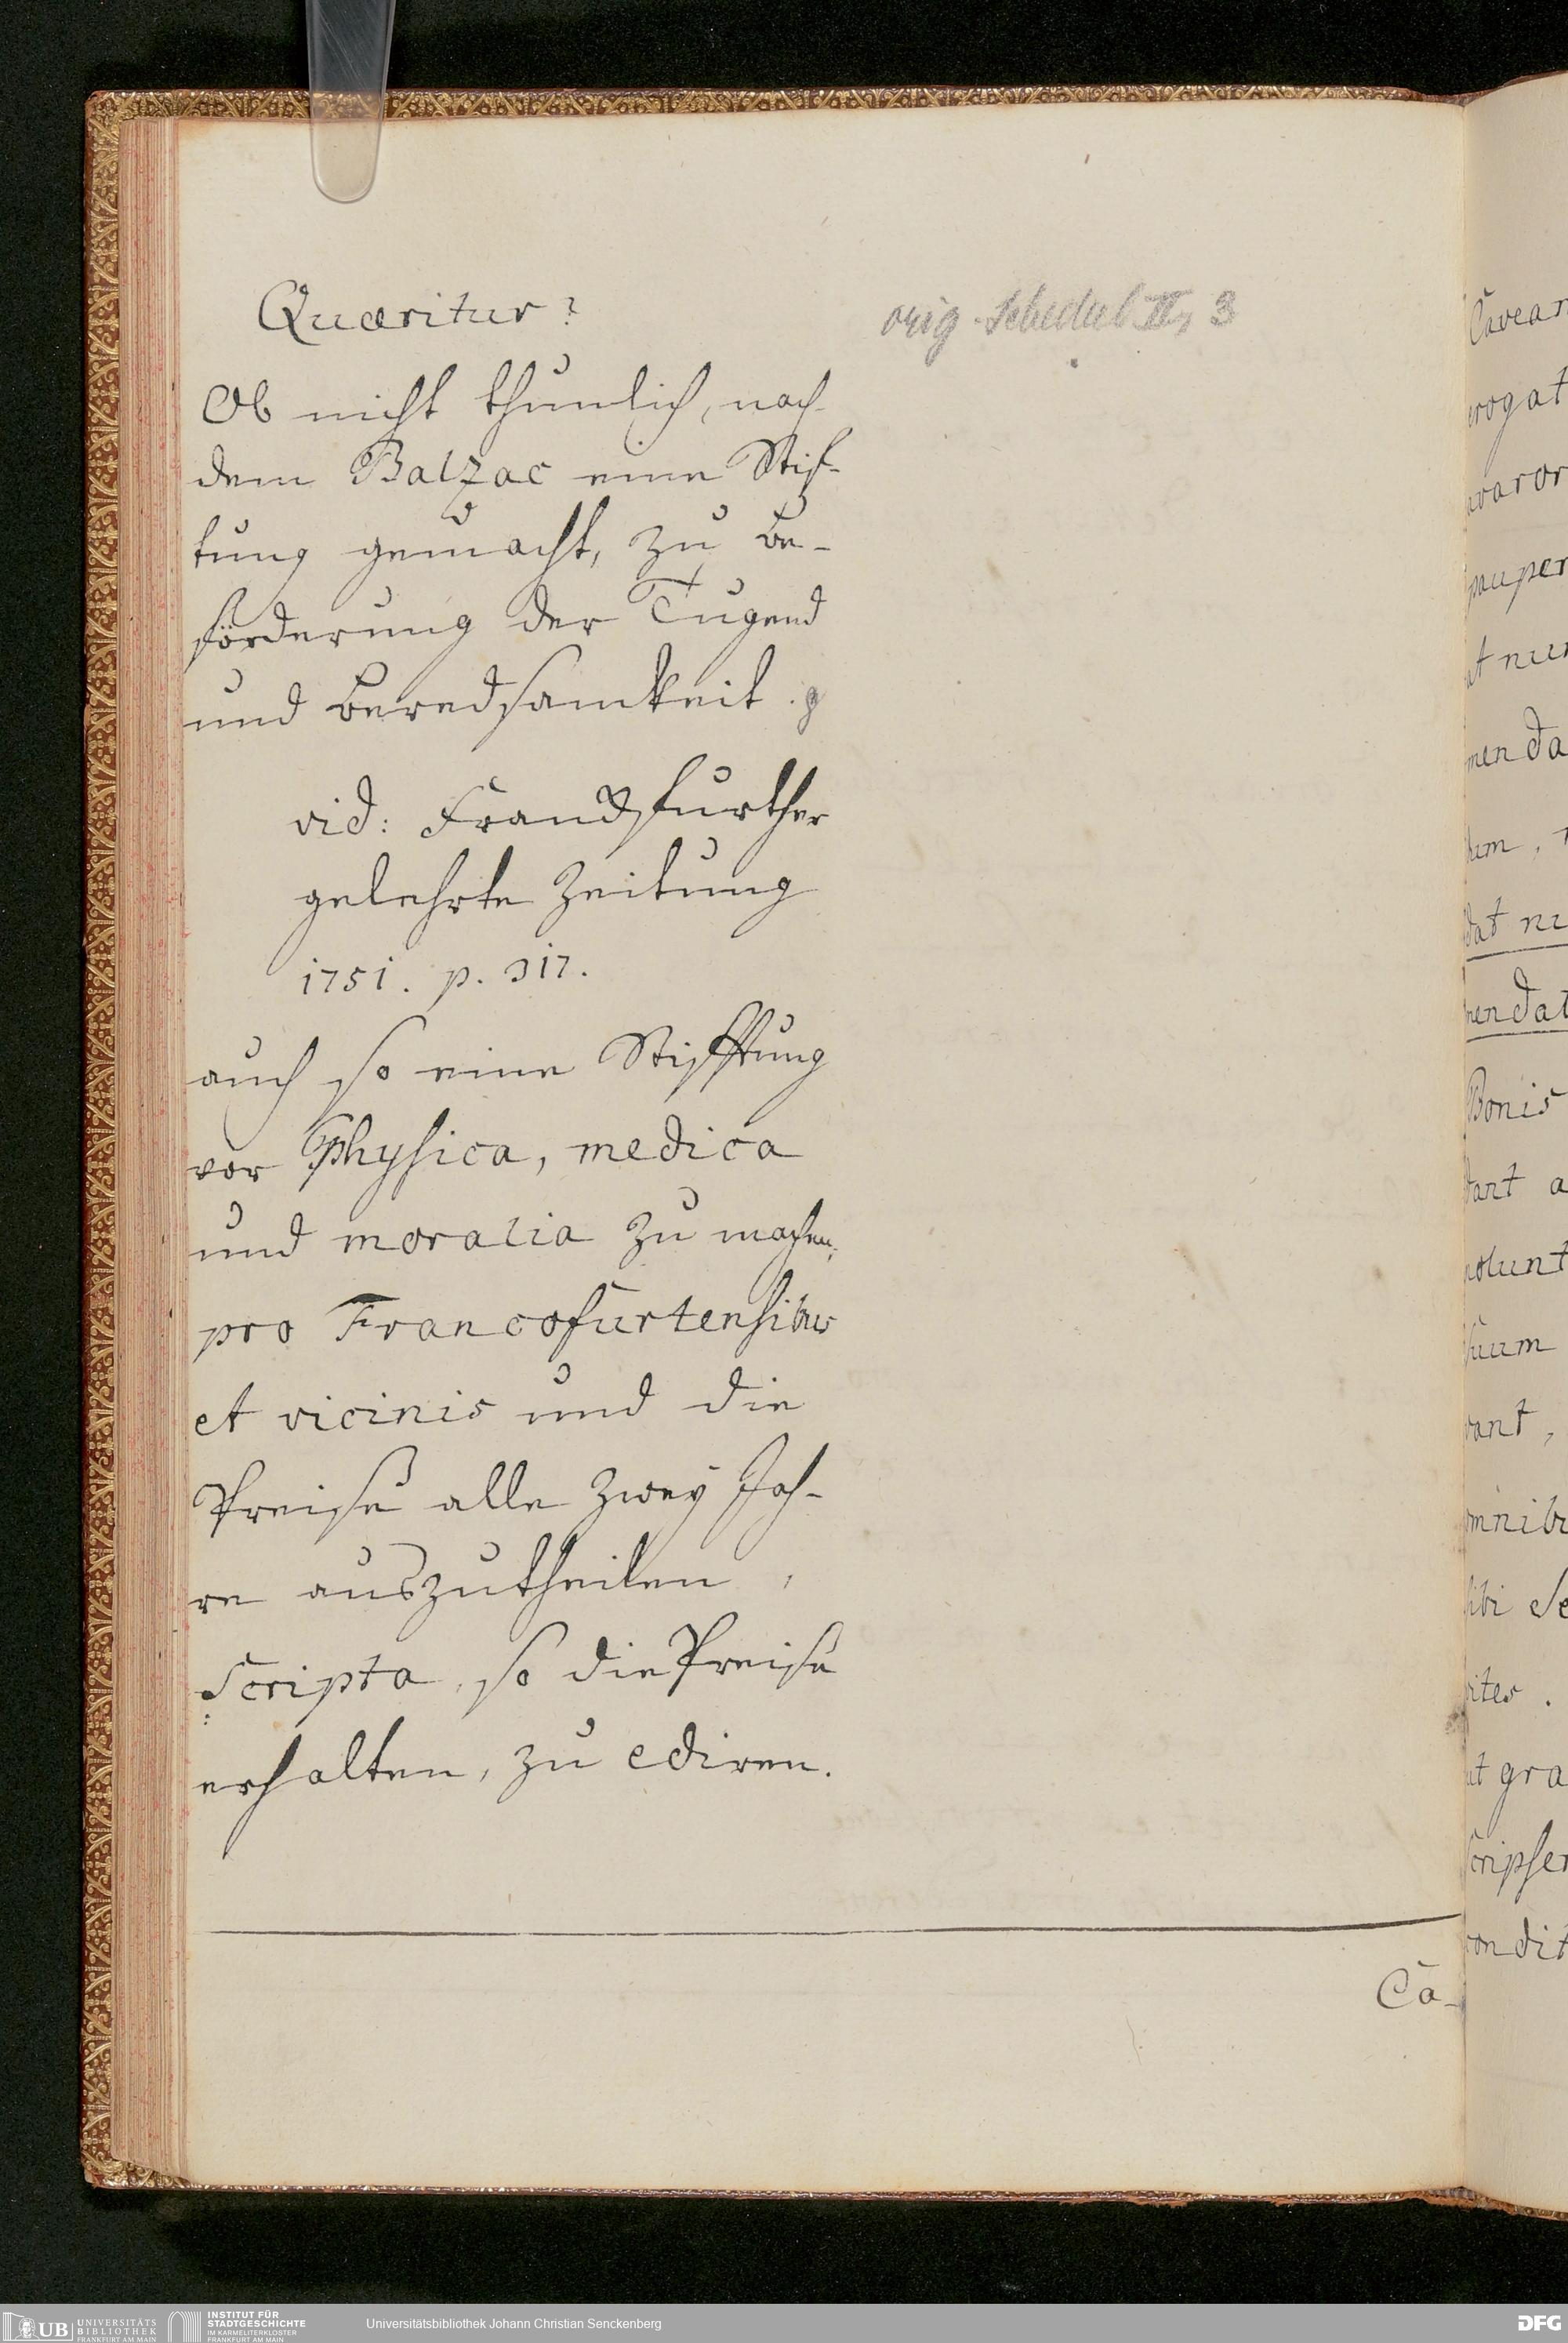 Quæritur?
orig. Schedul II, 3
Ob nicht thunlich, nach-
dem Balzac eine Stif-
tung gemacht, zu Be-
förderung der Tugend
und Beredsamkeit.
vid: Franckfurther
gelehrte Zeitung
1751. p. 317.
auch so eine Stifftung
vor Physica, medica
und moralia zu machen,
pro Francofurtensibus
et vicinis und die
Preise alle zwey Jah-
re auszutheilen,
Scripta, so die Preise
erhalten, zu ediren.
Ca-
Cavean
erogat
avaror
pauper
at nun
men da
dat nu
mendat
Bonis
dant a
nolunt
suum
vant,
omnibu
sibi se
vites.
ut gra
scripser
condit
UB UNIVERSITÄTS
BIBLIOTHEK
FRANKFURT AM MAIN
INSTITUT FÜR
STADTGESCHICHTE
IM KARMELITERKLOSTER
FRANKFURT AM MAIN
Universitätsbibliothek Johann Christian Senckenberg
DFG